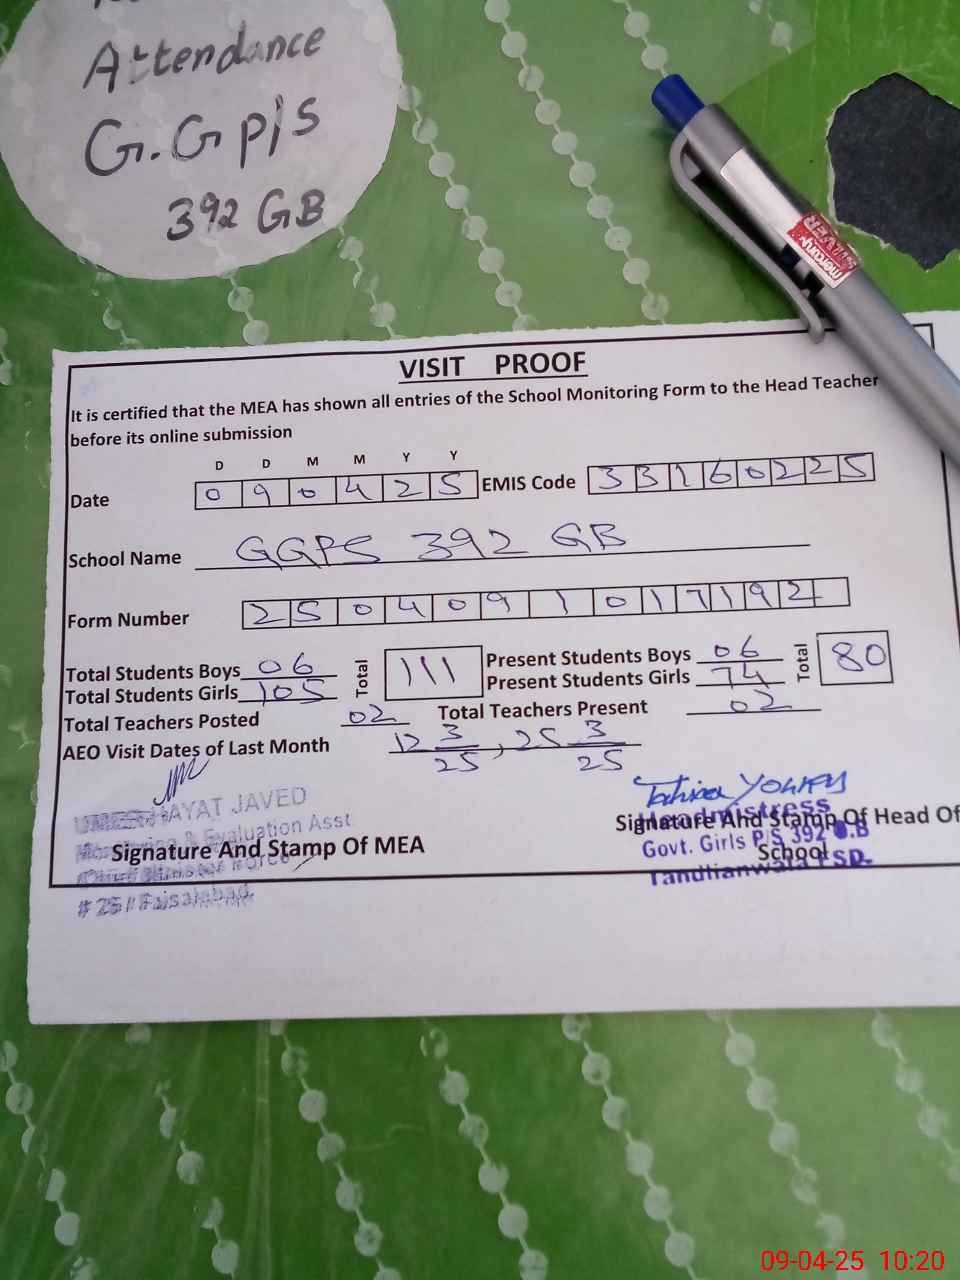 Attendance
G.G P/S
392 GB
mercury
SILVER
VISIT PROOF
It is certified that the MEA has shown all entries of the School Monitoring Form to the Head Teacher
before its online submission
D D M M Y Y
Date 0 9 0 4 2 5 EMIS Code 3 3 1 6 0 2 2 5
School Name GGPS 392 GB
Form Number 2 5 0 4 0 9 1 0 1 7 1 9 2
Total Students Boys 06 Total 111 Present Students Boys 06 Total 80
Total Students Girls 105 Present Students Girls 74
Total Teachers Posted 02 Total Teachers Present 02
AEO Visit Dates of Last Month 12 3/25, 25 3/25
HAYAT JAVED
& Evaluation Asst
Signature And Stamp Of MEA
Force
# 25 / Faisalabad.
Tahira
Headmistress
Signature And Stamp Of Head Of
Govt. Girls P/S 392 G.B
School
Tandlianwala FSD.
09-04-25 10:20